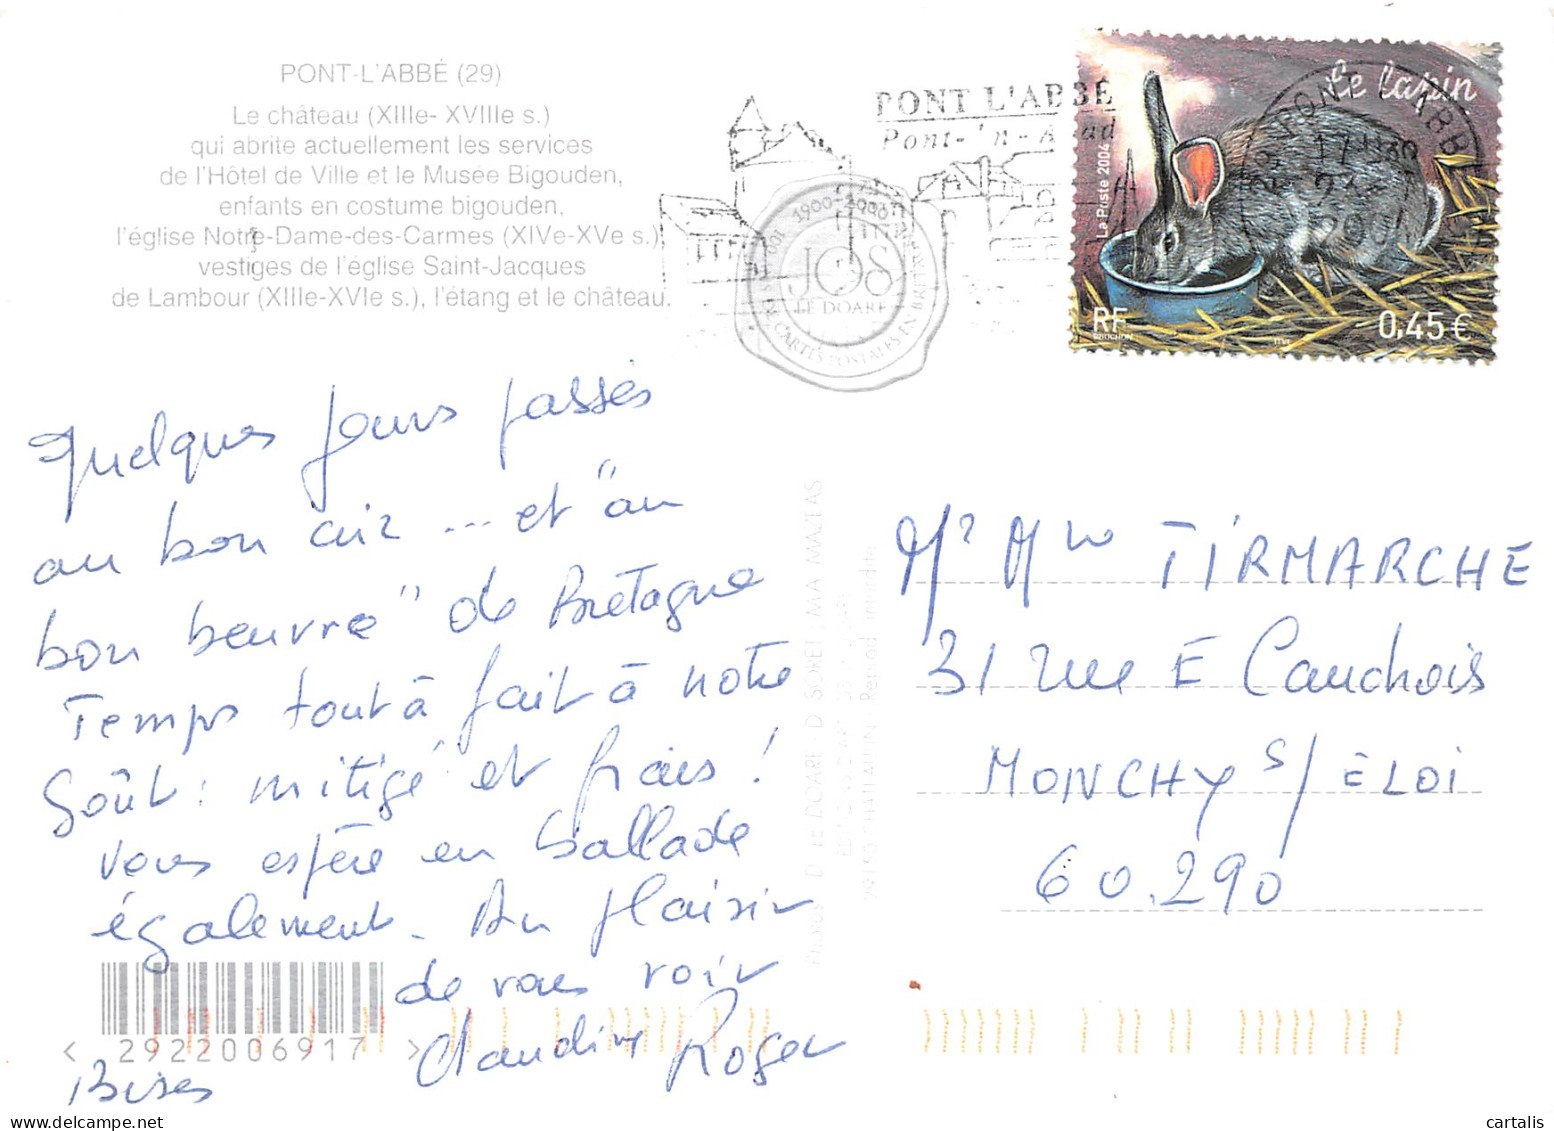 PONT-L'ABBÉ (29)
Le château (XIIIe- XVIIIe s.)
qui abrite actuellement les services
de l'Hôtel de Ville et le Musée Bigouden,
enfants en costume bigouden,
l'église Notre-Dame-des-Carmes (XIVe-XVe s.)
vestiges de l'église Saint-Jacques
de Lambour (XIIIe-XVIe s.), l'étang et le château.
PONT L'ABBÉ
Pont-'n-A ad
1900-2000
JOS
LE DOARÉ
CARTES POSTALES EN BRETAGNE
Le lapin
La Poste 2004
RF
0,45€
PONT L'ABBE
Quelques jours passés
au bon air ... et "au
bon beurre" de Bretagne
Temps tout à fait à notre
Goût : mitigé et frais !
vous espère en ballade
également. Au plaisir
de vous voir
Claudine Roger
Bises
< 2922006917 >
Mr Mme TIRMARCHE
31 rue E Cauchois
MONCHY S/ ELOI
60.290